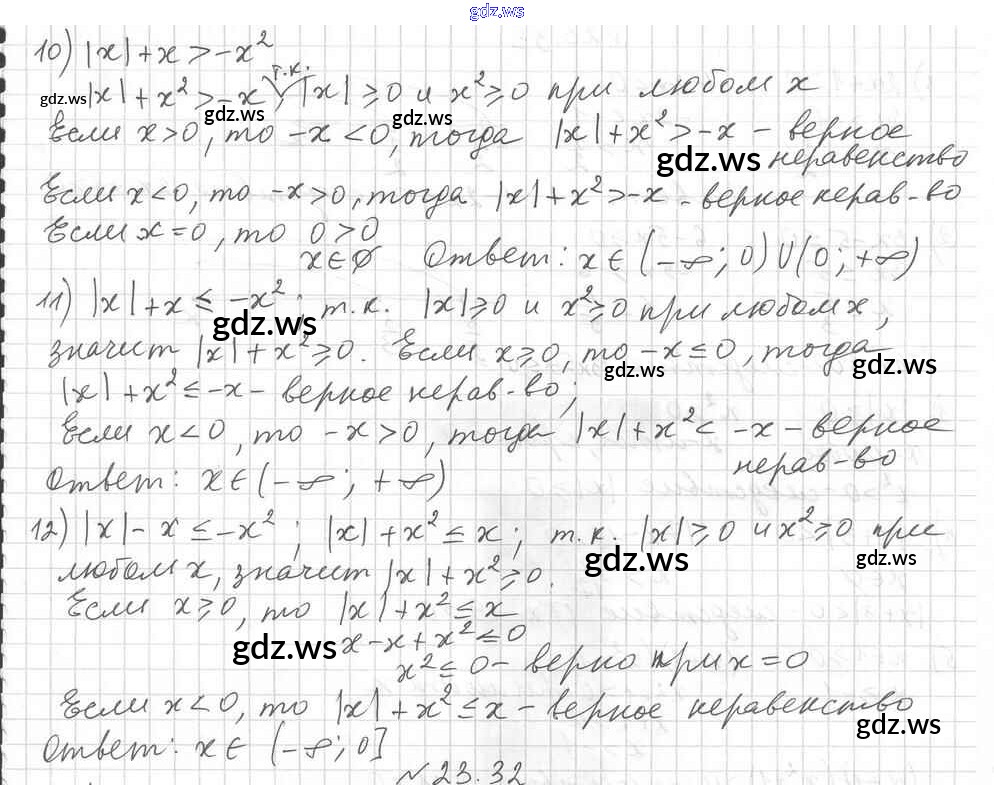 gdz.ws
10) |x|+x>-x²
gdz.ws |x|+x²>-x; т.к. |x|⩾0 и x²⩾0 при любом x
gdz.ws gdz.ws
Если x>0, то -x<0, тогда |x|+x²>-x - верное
gdz.ws неравенство
Если x<0, то -x>0, тогда |x|+x²>-x - верное нерав-во
Если x=0, то 0>0
x∈∅ Ответ: x∈(-∞;0)U(0;+∞)
11) |x|+x≤-x²; т.к. |x|⩾0 и x²⩾0 при любом x,
gdz.ws
значит |x|+x²⩾0. Если x⩾0, то -x≤0, тогда
gdz.ws gdz.ws
|x|+x²≤-x - верное нерав-во;
Если x<0, то -x>0, тогда |x|+x²< -x - верное
нерав-во
Ответ: x∈(-∞; +∞)
12) |x|-x≤-x²; |x|+x²≤x; т.к. |x|⩾0 и x²⩾0 при
gdz.ws gdz.ws
любом x, значит |x|+x²⩾0.
Если x⩾0, то |x|+x²≤x
gdz.ws x-x+x²≤0
x²≤0 - верно при x=0
Если x<0, то |x|+x²≤x - верное неравенство
gdz.ws
Ответ: x∈(-∞;0]
№23.32